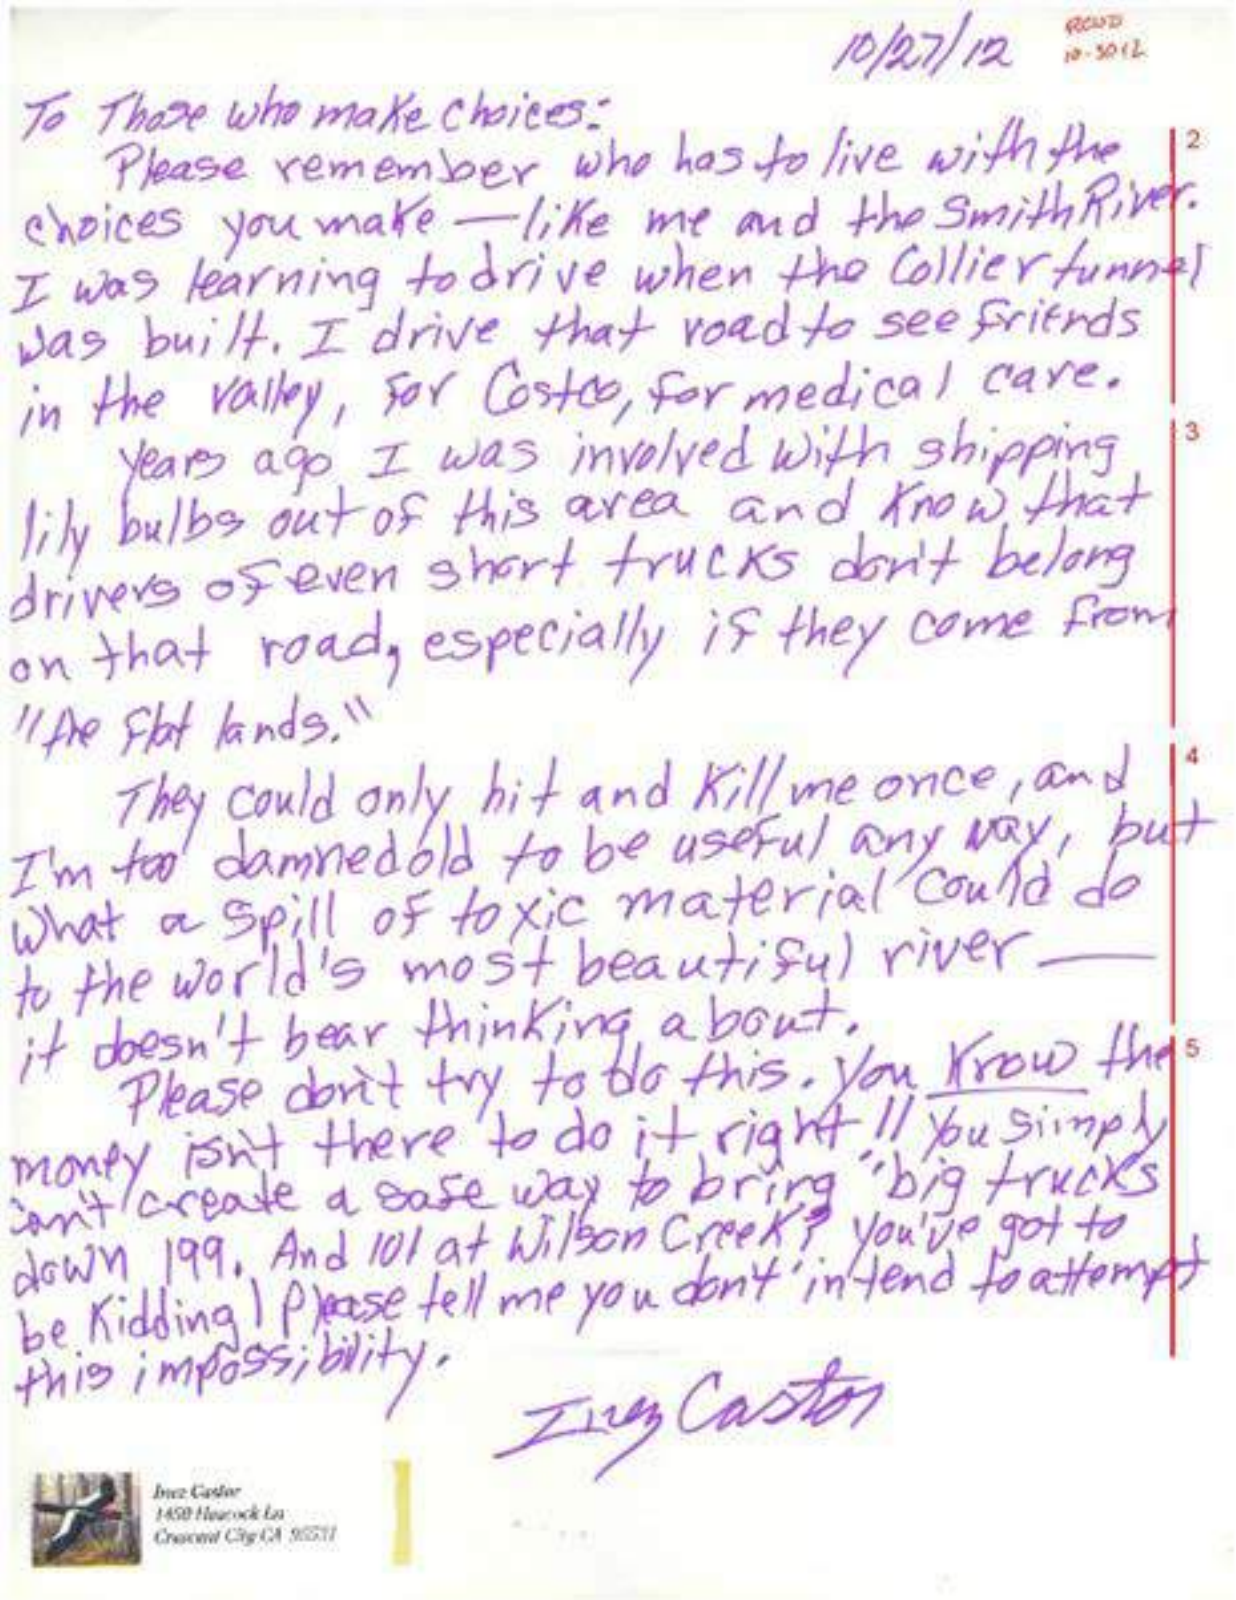 10/27/12
RCVD
10-3012
To Those who make choices:
Please remember who has to live with the
choices you make — like me and the Smith River.
I was learning to drive when the Collier tunnel
was built. I drive that road to see friends
in the valley, for Costco, for medical care.
Years ago I was involved with shipping
lily bulbs out of this area and know that
drivers of even short trucks don't belong
on that road, especially if they come from
"the flat lands."
They could only hit and kill me once, and
I'm too damned old to be useful any way, but
what a spill of toxic material could do
to the world's most beautiful river —
it doesn't bear thinking about.
Please don't try to do this. You know the
money isn't there to do it right!! You simply
can't create a safe way to bring "big trucks
down 199. And 101 at Wilson Creek? You've got to
be kidding! Please tell me you don't intend to attempt
this impossibility.
Inez Castor
Inez Castor
1450 Ln
Crescent City CA 95531
2
3
4
5